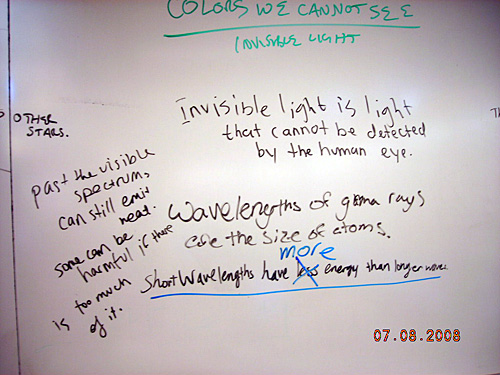 COLORS WE CANNOT SEE
INVISIBLE LIGHT
OTHER
STARS.
Invisible light is light
that cannot be detected
by the human eye.
past the visible
spectrum,
can still emit
heat.
some can be
harmful if there
is too much
of it.
Wavelengths of gama rays
are the size of atoms.
more
Short wavelengths have less energy than longer waves
07.08.2008